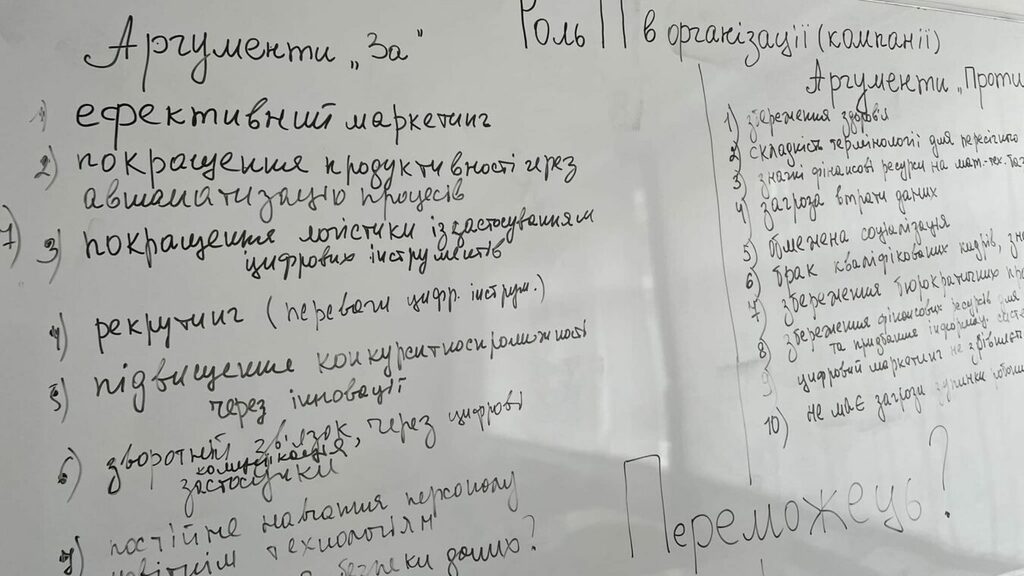 Роль ІТ в організації (компанії)
Аргументи „За"
1) ефективний маркетинг
2) покращення продуктивності через
автоматизацію процесів
7)
3) покращення логістики із застосуванням
цифрових інструментів
4) рекрутинг (переваги цифр. інструм.)
5) підвищення конкурентноспроможності
через інновації
6) зворотній зв'язок, через цифрові
комунікація
застосунки
7) постійне навчання персоналу
новітнім технологіям
безпеки даних?
Аргументи „Проти
1) збереження здоровя
2) складність термінології для пересічного
3) значні фінансові ресурси на мат-тех.
4) загроза втрати даних
5) обмежена соціалізація
6) брак кваліфікованих кадрів,
7) збереження бюрократичних
8) збереження фінансових ресурсів для
та придбання
9) цифровий маркетинг не
10) не має загрози зупинки
Переможець?